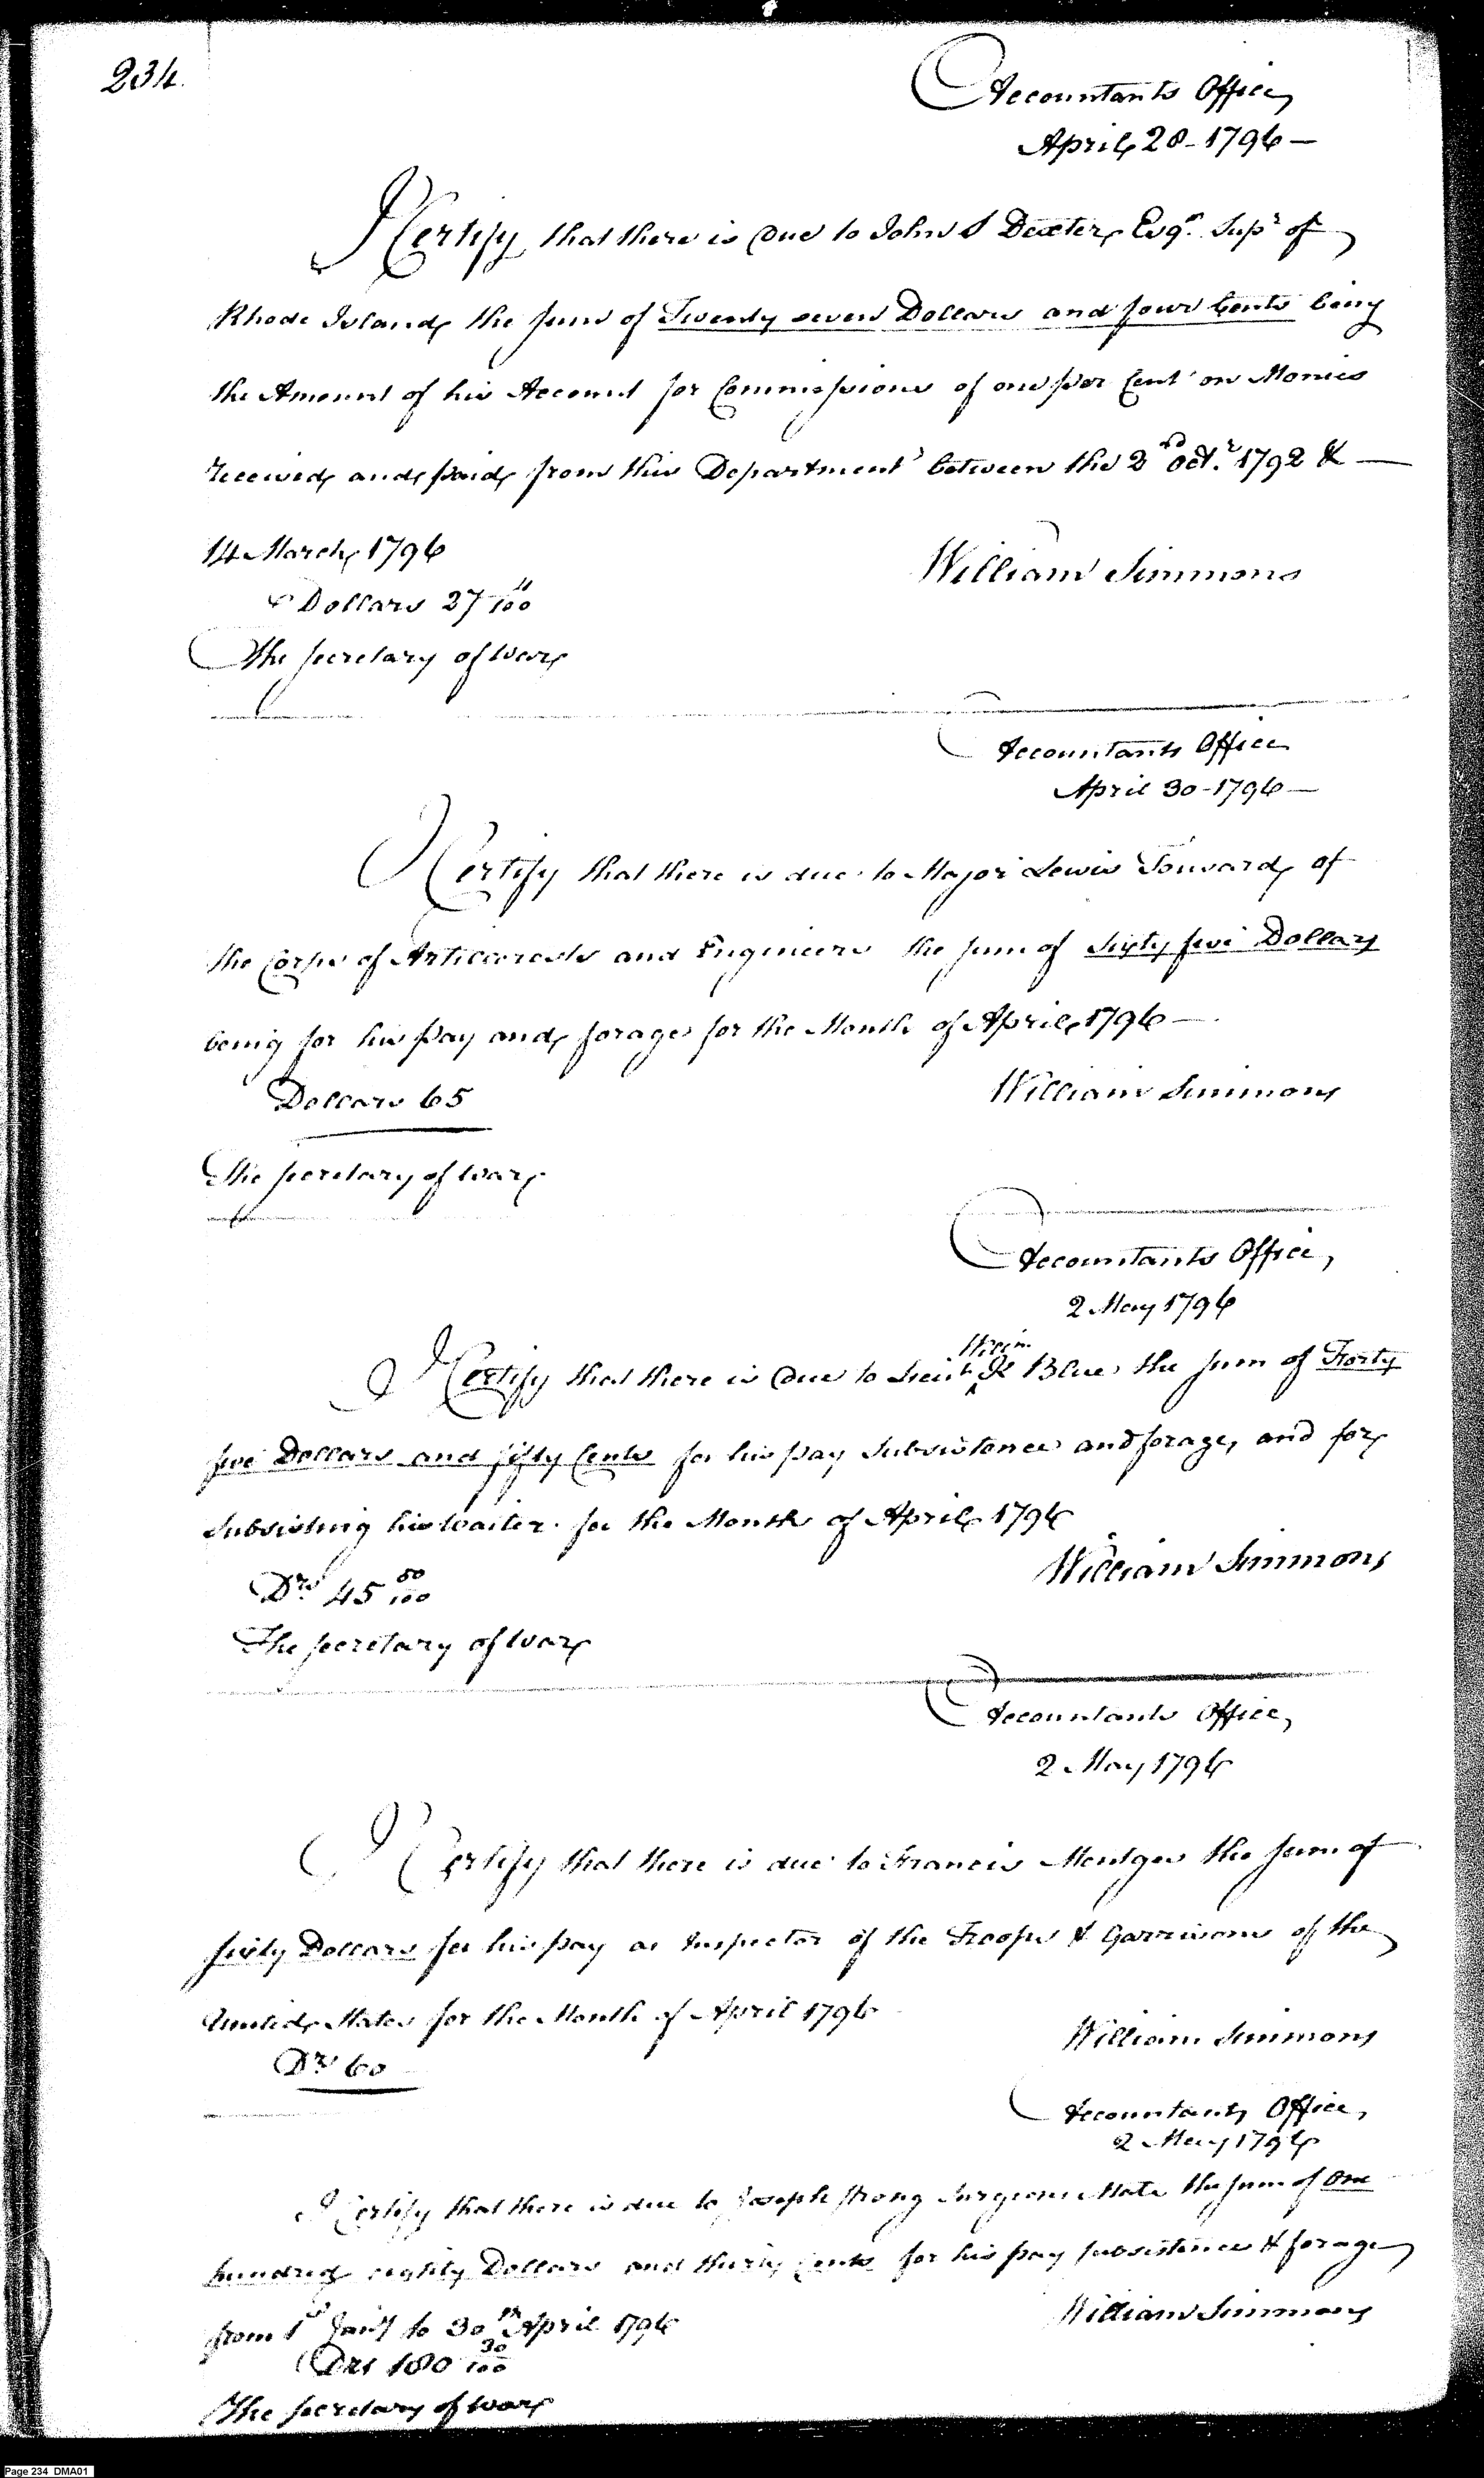 234.
Accountants Office
April 28 - 1796 —
I Certify that there is Due to John S Dexter Esqr. Supr of
Rhode Island the sum of Twenty seven Dollars and four Cents being
the Amount of his Account for Commissions of one per Cent on Monies
received and paid from this Department between the 2nd Octr. 1792 & —
14 March 1796
William Simmons
Dollars 27 4/100
The Secretary of War
Accountants Office
April 30 - 1796 —
I Certify that there is due to Major Lewis Tousard of
the Corps of Artillerists and Engineers the sum of sixty five Dollars
being for his pay and forage for the Month of April 1796 —
Dollars 65
William Simmons
The Secretary of War
Accountants Office,
2 May 1796
Willm.
I Certify that there is Due to Lieut. K Blue the sum of Forty
five Dollars and fifty Cents for his pay subsistence and forage, and for
subsisting his waiter for the Month of April 1796
William Simmons
Drs 45 50/100
The Secretary of War
Accountants Office,
2 May 1796
I Certify that there is due to Francis Mentges the sum of
sixty Dollars for his pay as Inspector of the Troops & Garrisons of the
United States for the Month of April 1796
William Simmons
Drs 60
Accountants Office,
2 May 1796
I Certify that there is due to Joseph Strong Surgeons Mate the sum of One
hundred eighty Dollars and thirty Cents for his pay subsistence & forage
from 1st Jany to 30th April 1796
William Simmons
Drs 180 30/100
The Secretary of War
Page 234 DMA01